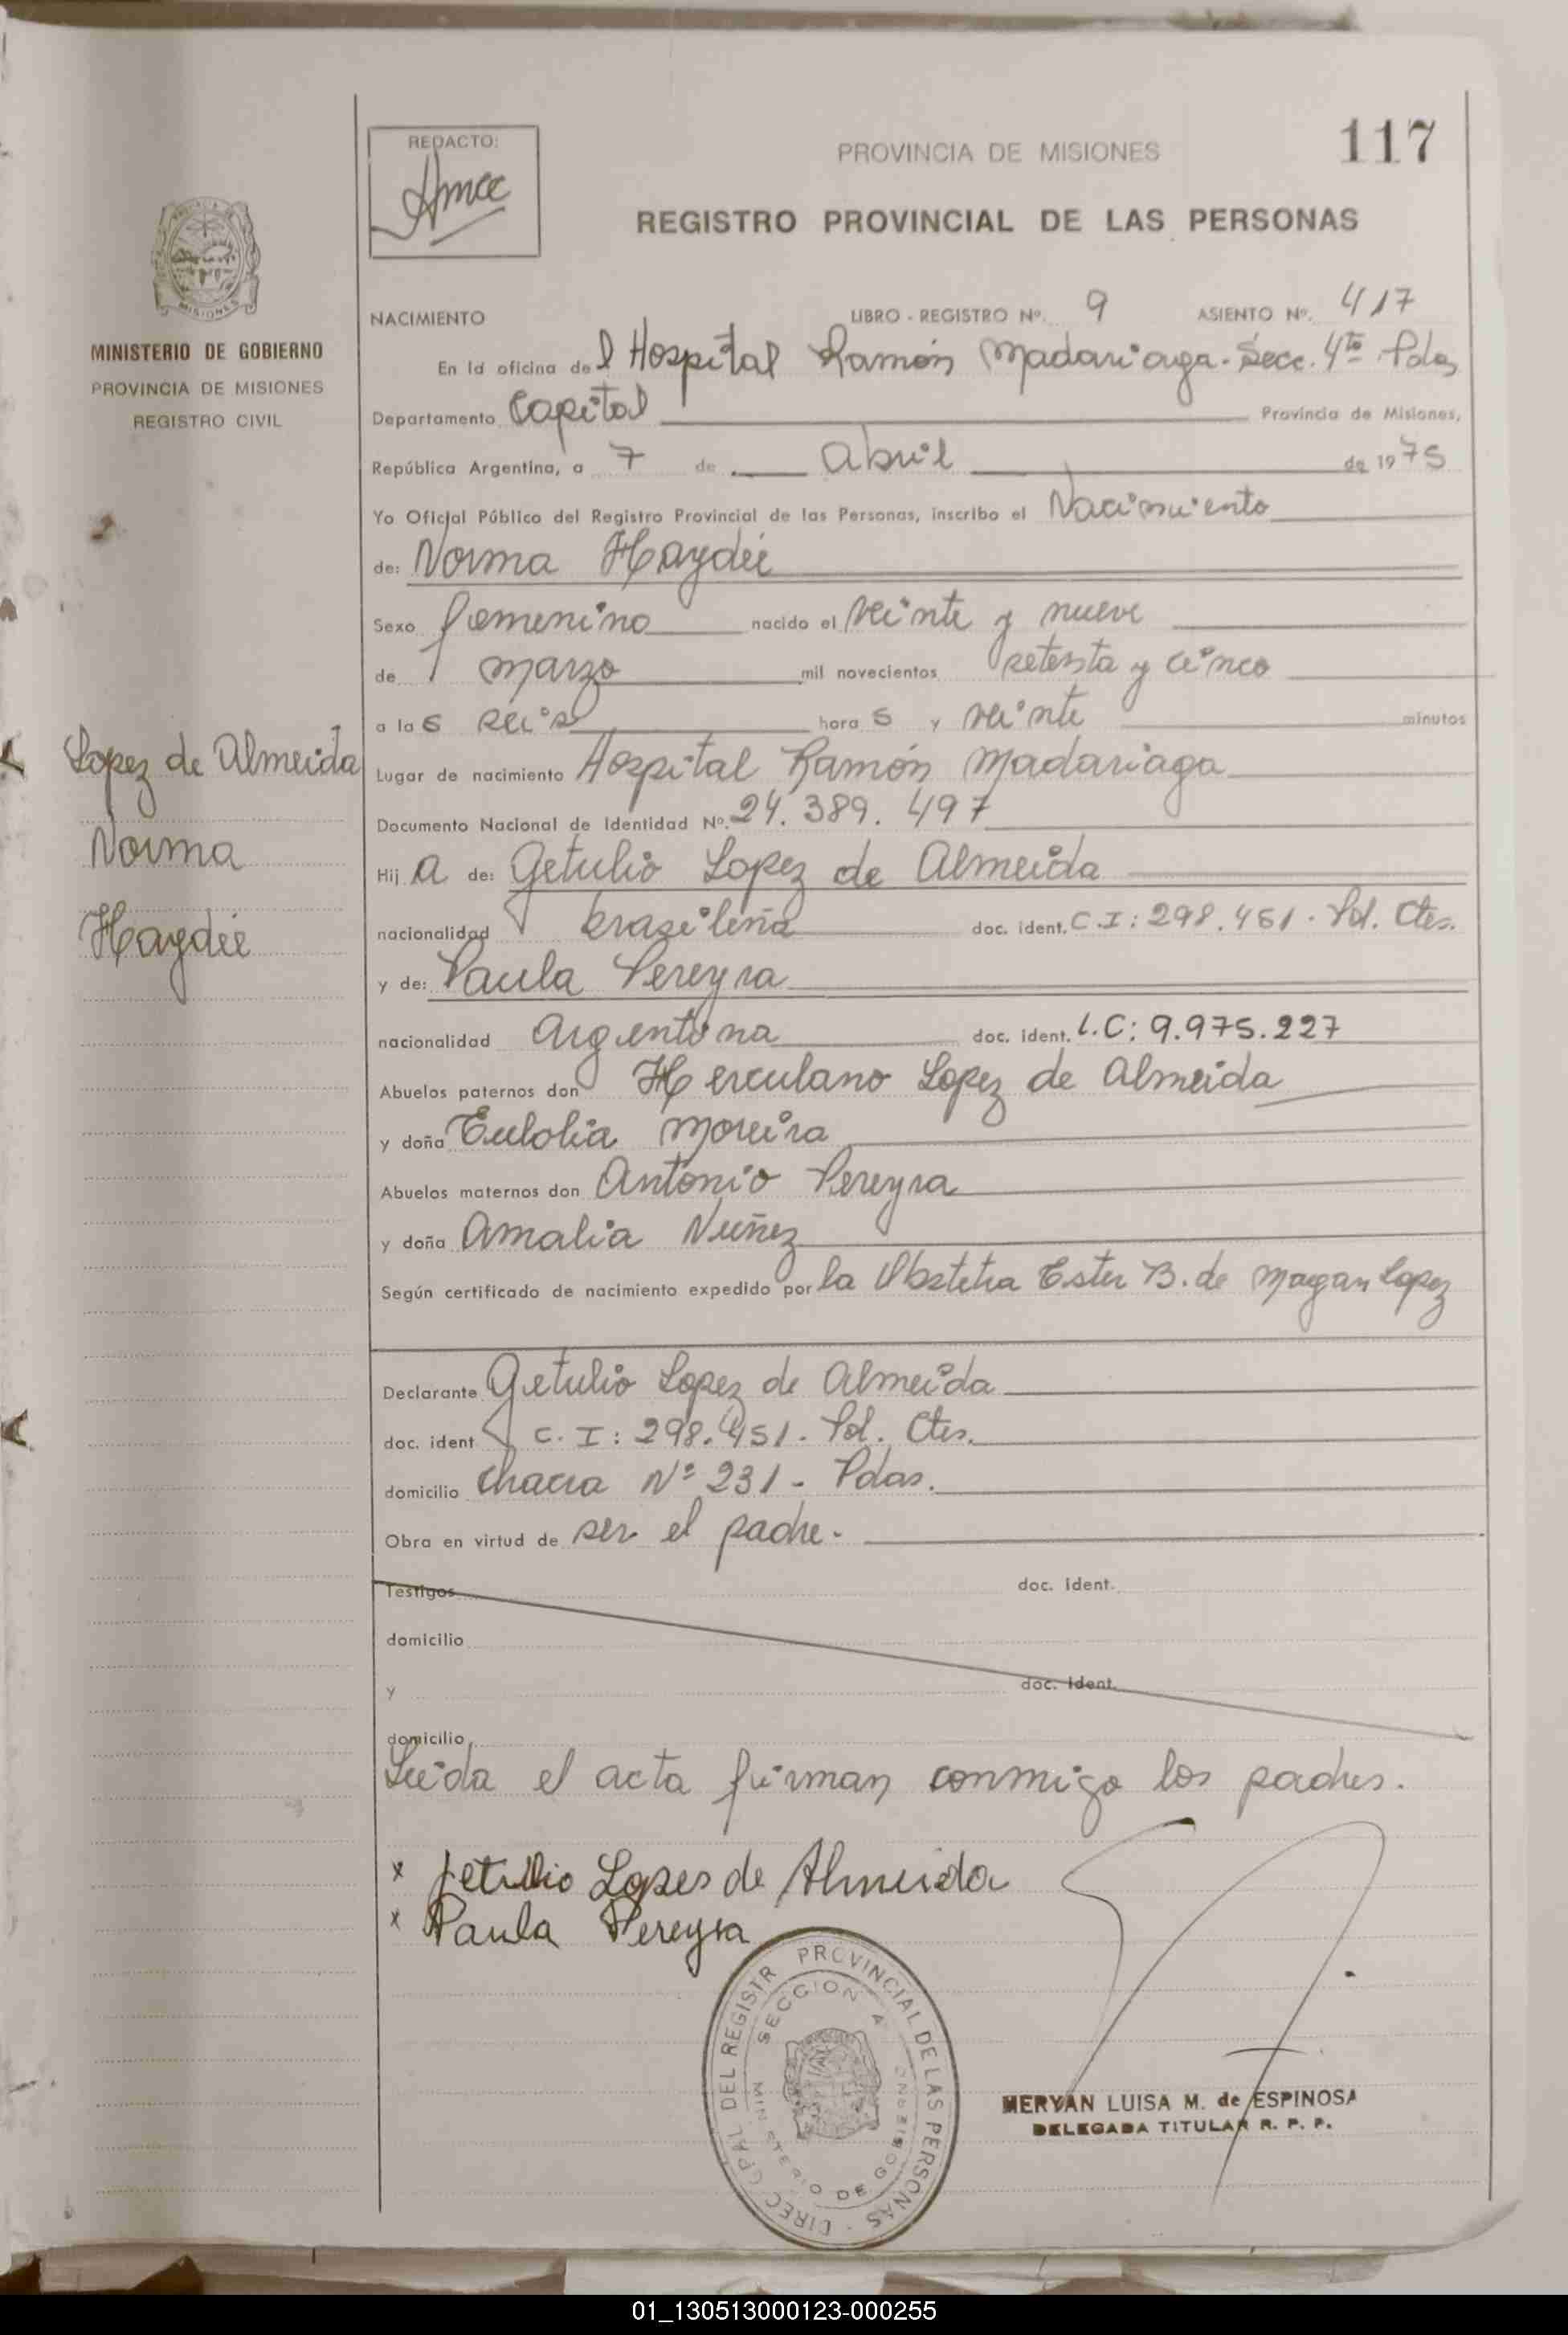 117
REDACTO:
PROVINCIA DE MISIONES
REGISTRO PROVINCIAL DE LAS PERSONAS
MISIONES
MINISTERIO DE GOBIERNO
PROVINCIA DE MISIONES
REGISTRO CIVIL
NACIMIENTO LIBRO - REGISTRO Nº. 9 ASIENTO Nº. 417
En la oficina del Hospital Ramón Madariaga - Secc. 4ta Pdas
Departamento Capital Provincia de Misiones,
República Argentina, a 7 de Abril de 1975
Yo Oficial Público del Registro Provincial de las Personas, inscribo el Nacimiento
de: Norma Haydée
Sexo femenino nacido el veinte y nueve
de marzo mil novecientos setenta y cinco
a las seis horas y veinte minutos
Lopez de Almeida
Norma
Haydée
Lugar de nacimiento Hospital Ramón Madariaga
Documento Nacional de Identidad Nº. 24.389.497
Hija de: Getulio Lopez de Almeida
nacionalidad brasileña doc. ident. C.I: 298.451 - Pol. Ctes.
y de: Paula Pereyra
nacionalidad Argentina doc. ident. L.C: 9.975.227
Abuelos paternos don Herculano Lopez de Almeida
y doña Eulolia Moreira
Abuelos maternos don Antonio Pereyra
y doña Amalia Nuñez
Según certificado de nacimiento expedido por la Obstetra Ester B. de Magan Lopez
Declarante Getulio Lopez de Almeida
doc. ident C.I: 298.451 - Pol. Ctes.
domicilio Chacra Nº 231 - Pdas.
Obra en virtud de ser el padre.
Testigos doc. ident.
domicilio
y doc. ident.
domicilio
Leida el acta firman conmigo los padres.
x Getulio Lopes de Almeida
x Paula Pereyra
DIREC GPAL DEL REGISTR PROVINCIAL DE LAS PERSONAS
SECCION A
MINISTERIO DE GOBIERNO
MERYAN LUISA M. de ESPINOSA
DELEGADA TITULAR R. P. P.
01_130513000123-000255